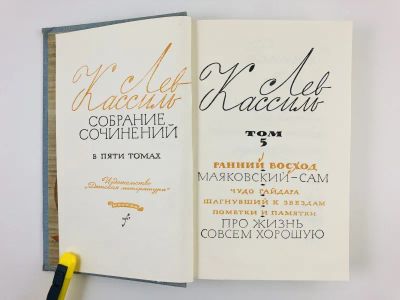 Лев
Кассиль
СОБРАНИЕ
СОЧИНЕНИЙ
В ПЯТИ ТОМАХ
Издательство
„Детская литература“
МОСКВА
Лев
Кассиль
ТОМ
5
РАННИЙ ВОСХОД
МАЯКОВСКИЙ–САМ
ЧУДО ГАЙДАРА
ШАГНУВШИЙ К ЗВЕЗДАМ
ПОМЕТКИ И ПАМЯТКИ
ПРО ЖИЗНЬ
СОВСЕМ ХОРОШУЮ